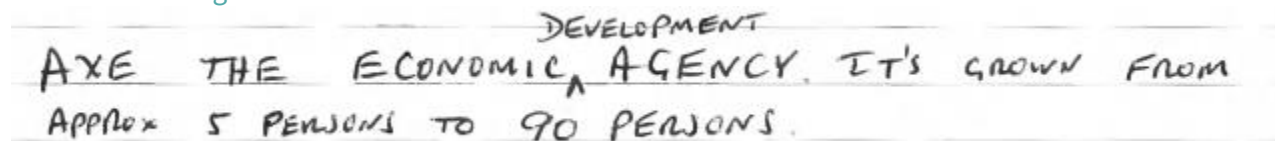 AXE THE ECONOMIC DEVELOPMENT AGENCY. IT'S GROWN FROM
APPROX 5 PERSONS TO 90 PERSONS.